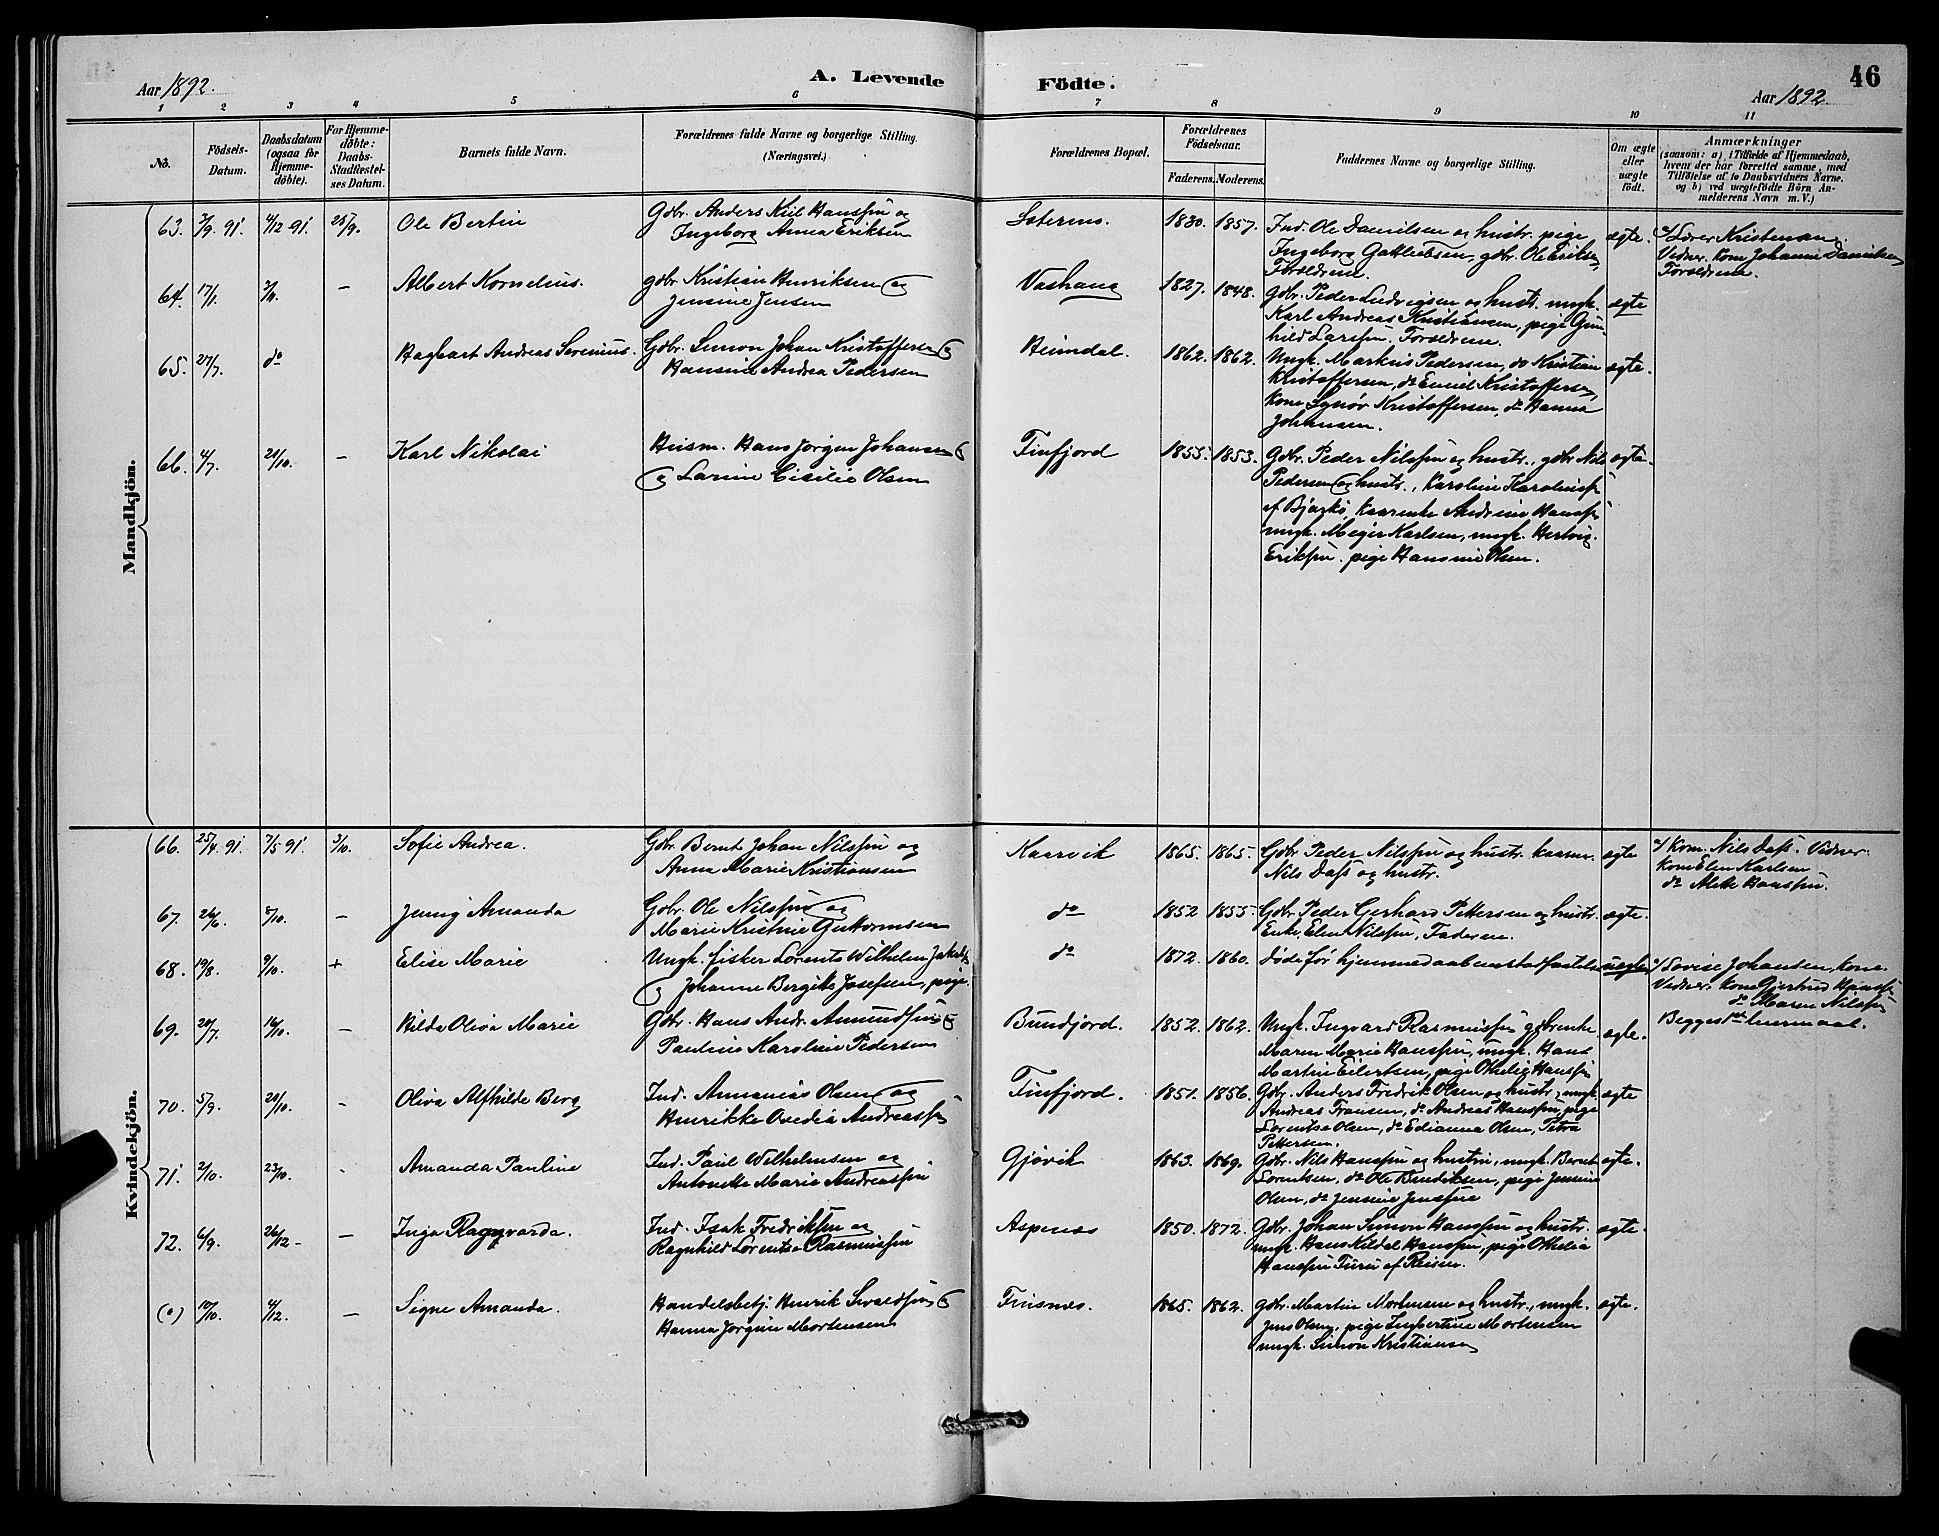 Aar 1892.
A. Levende
Födte.
46
Aar 1892
1 2 3 4 5 6 7 8 9 10 11
No.
Födsels-
Datum.
Daabsdatum
(ogsaa for
Hjemme-
döbte).
For Hjemme-
döbte:
Daabs-
Stadfæstel-
ses Datum.
Barnets fulde Navn.
Forældrenes fulde Navne og borgerlige Stilling.
(Næringsvei.)
Forældrenes Bopæl.
Forældrenes
Födselsaar.
Faderens. Moderens.
Faddernes Navne og borgerlige Stilling.
Om ægte
eller
uægte
födt.
Anmærkninger
(saasom: a) i Tilfælde af Hjemmedaab,
hvem der har forrettet samme, med
Tilföielse af to Daabsvidners Navne.
og b) ved uægtefödte Börn An-
melderens Navn m. V.)
Mandkjön.
63. 3/9. 91. 4/12 91. 25/9. Ole Bertin
Gdbr. Anders Kiil Hanssen og
Ingeborg Anna Eriksen
1830. 1857.
Ind. Ole Danielsen og hustr. pige
Ingeborg Gabrielsen, gdbr. Ole Eriksen,
Forældrene.
ægte.
Lærer Kristensen
Vidner. Kone Johanna Danielsen
Forældrene.
64. 17/1. – Albert Kornelius.
gdbr. Kristian Henriksen og
Jensine Jensen
Vashaug
1827. 1848.
Gdbr. Peder Ludvigsen og hustr. ungk.
Karl Andreas Kristiansen, pige Gun-
hild Larssen. Forældrene.
ægte
65. 27/7. do Hagbart Andreas Serenius.
Gdbr. Simon Johan Kristoffersen og
Hansine Andrea Pedersen
Heimdal.
1862. 1862.
Ungk. Markus Pedersen, do Kristian
Kristoffersen, do Emiel Kristoffersen,
Kone Synör Kristoffersen, do Hanna
Johansen.
ægte.
66. 4/7. 20/10. – Karl Nikolai
Husm. Hans Jörgen Johansen
og Larine Cisilie Olsen
Tinfjord
1855. 1853.
Gdbr. Peder Nilssen og hustr., gdbr Nils
Pedersen og hustr., Karoline Karoliuss.
af Bjarkö, kaarenke Andrine Hanss.
ungk. Meyer Karlsen, ungk. Hertvig
Erikssen. pige Hansine Olsen.
ægte.
Kvindekjön.
66. 25/4. 91. 7/5 91. 3/10. Sofie Andrea.
Gdbr. Bernt Johan Nilssen og
Anna Marie Kristiansen
Kaarvik
1865. 1865.
Gdbr Peder Nilssen og hustr. kaarm.
Nils Dass og hustr.
ægte
Kone. Nils Dass. Vidner.
Kone Elen Karlsen
do Alette Hanssen.
67. 26/6. 8/10. – Jenny Amanda
Gdbr. Ole Nilssen og
Marie Kristine Guttormsen
do
1852 1855.
Gdbr. Peder Gerhard Pettersen og hustr.
Enke Elen Nilssen, Faderen.
ægte.
68. 19/8. 9/10. + Elise Marie
Ungk. fisker Lorents Wilhelm Jakobs.
og Johanne Bergitte Josefsen, pige.
do
1872. 1860.
döde för hjemmedaaben stadfæstelse
uægte
Lovise Johansen, kone.
Vidner. Kone Gjertrud Hanss.
do Maren Nilssen
Begges 1ste leiermaal.
69. 20/7. 16/10. – Hilda Oliva Marie
Gdbr. Hans Andr. Amundsen og
Pauline Karoline Pedersen
Bundjord.
1852. 1862.
Ungk. Ingvard Rasmussen gdbrenke
Maren Marie Hanssen, ungk. Hans
Martin Eilertsen, pige Othelie Hanssen
ægte.
70. 5/9. 20/10. – Oliva Alfhilde Berg
Ind. Annanias Olsen og
Henrikke Ovedia Andreass.
Tinfjord.
1851. 1856.
Gdbr. Anders Fredrik Olsen og hustr, ungk
Andreas Fransen, do Andreas Hanssen, pige
Lorentse Olsen, do Edianna Olsen, Petra
Pettersen.
ægte
71. 2/10. 23/10. Amanda Pauline
Ind. Paul Wilhelmsen og
Antonette Marie Andreassen
Gjövik
1863. 1869.
Gdbr. Nils Hanssen og hustru, ungk. Bernt
Lorentsen, do Ole Bendiksen, pige Jensine
Olsen, do Jensine Jenssen
ægte.
72. 6/9. 26/12 – – Inga Ragnvarda.
Ind. Isak Fredriksen og
Ragnhild Lorentse Rasmussen
Aspenes
1850. 1872.
Gdbr. Johan Simon Hanssen og hustr.
ungk. Hans Kildal Hanssen, pige Othelia
Hanssen Turu af Reisen.
ægte.
10/10. 4/12. – Signe Amanda.
Handelsbetj. Henrik Sivaldsen og
Hanna Jorgine Mortensen
Finsnes.
1865. 1862.
gdbr. Martin Mortensen og hustr., ungk.
Jens Olsen, pige Ingbertine Mortensen
ungk. Simon Kristiansen
ægte.